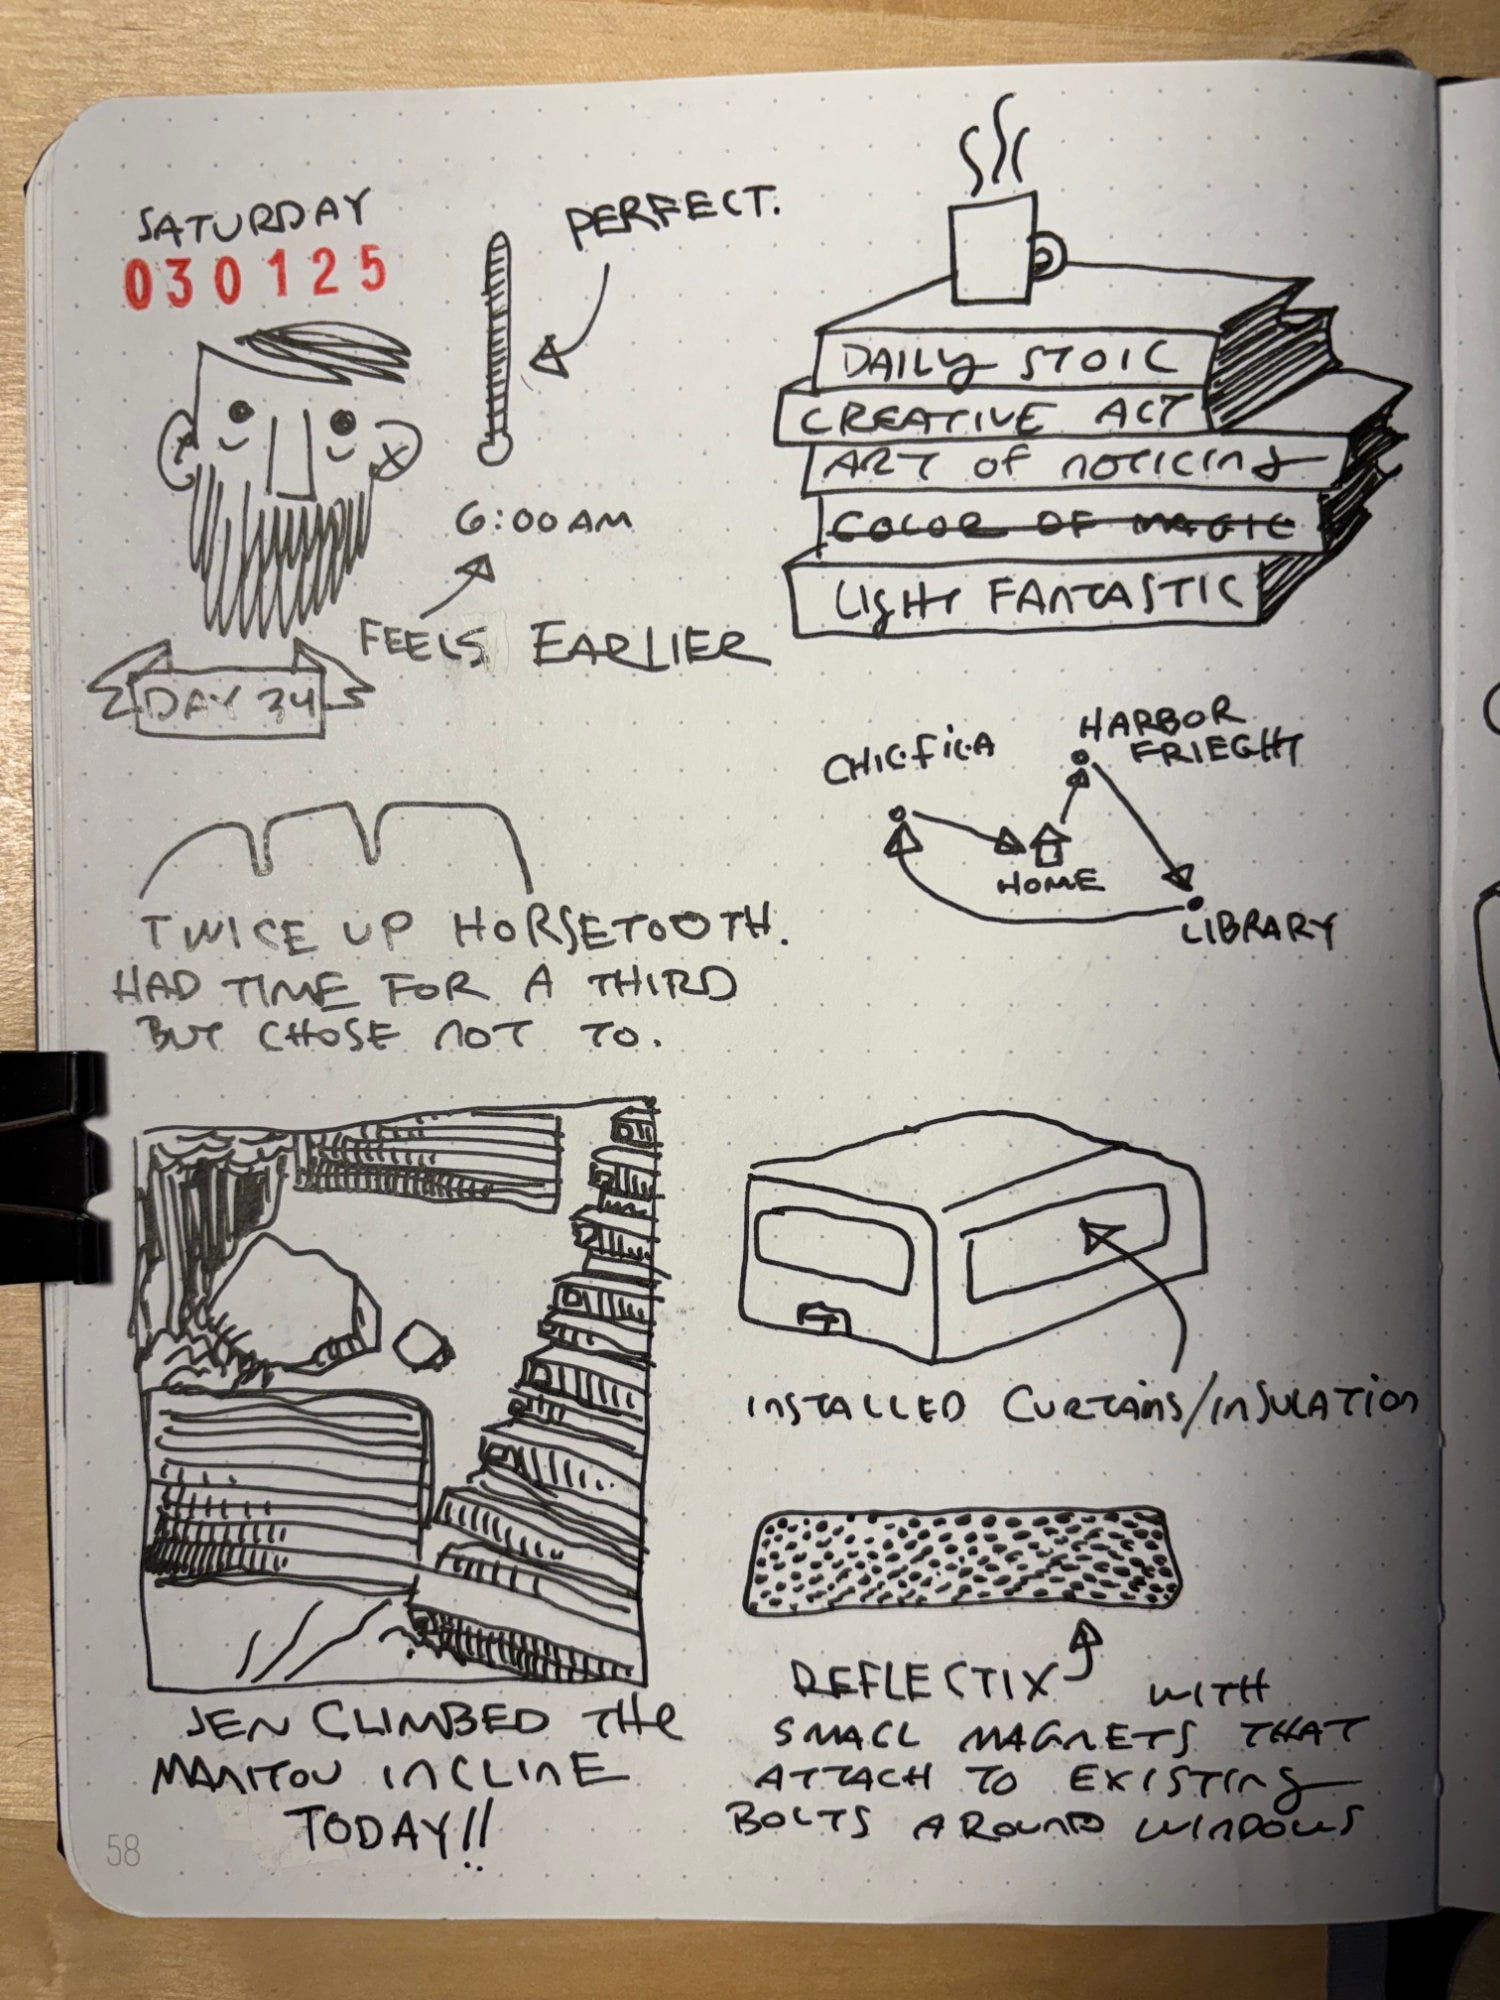 SATURDAY
030125
PERFECT.
6:00 AM
FEELS EARLIER
DAY 34
DAILY STOIC
CREATIVE ACT
ART OF NOTICING
COLOR OF MAGIC
LIGHT FANTASTIC
CHIC.FIL.A
HARBOR
FRIEGHT
HOME
LIBRARY
TWICE UP HORSETOOTH.
HAD TIME FOR A THIRD
BUT CHOSE NOT TO.
JEN CLIMBED THE
MANITOU INCLINE
TODAY!!
INSTALLED CURTAINS/INSULATION
REFLECTIX WITH
SMALL MAGNETS THAT
ATTACH TO EXISTING
BOLTS AROUND WINDOWS
58